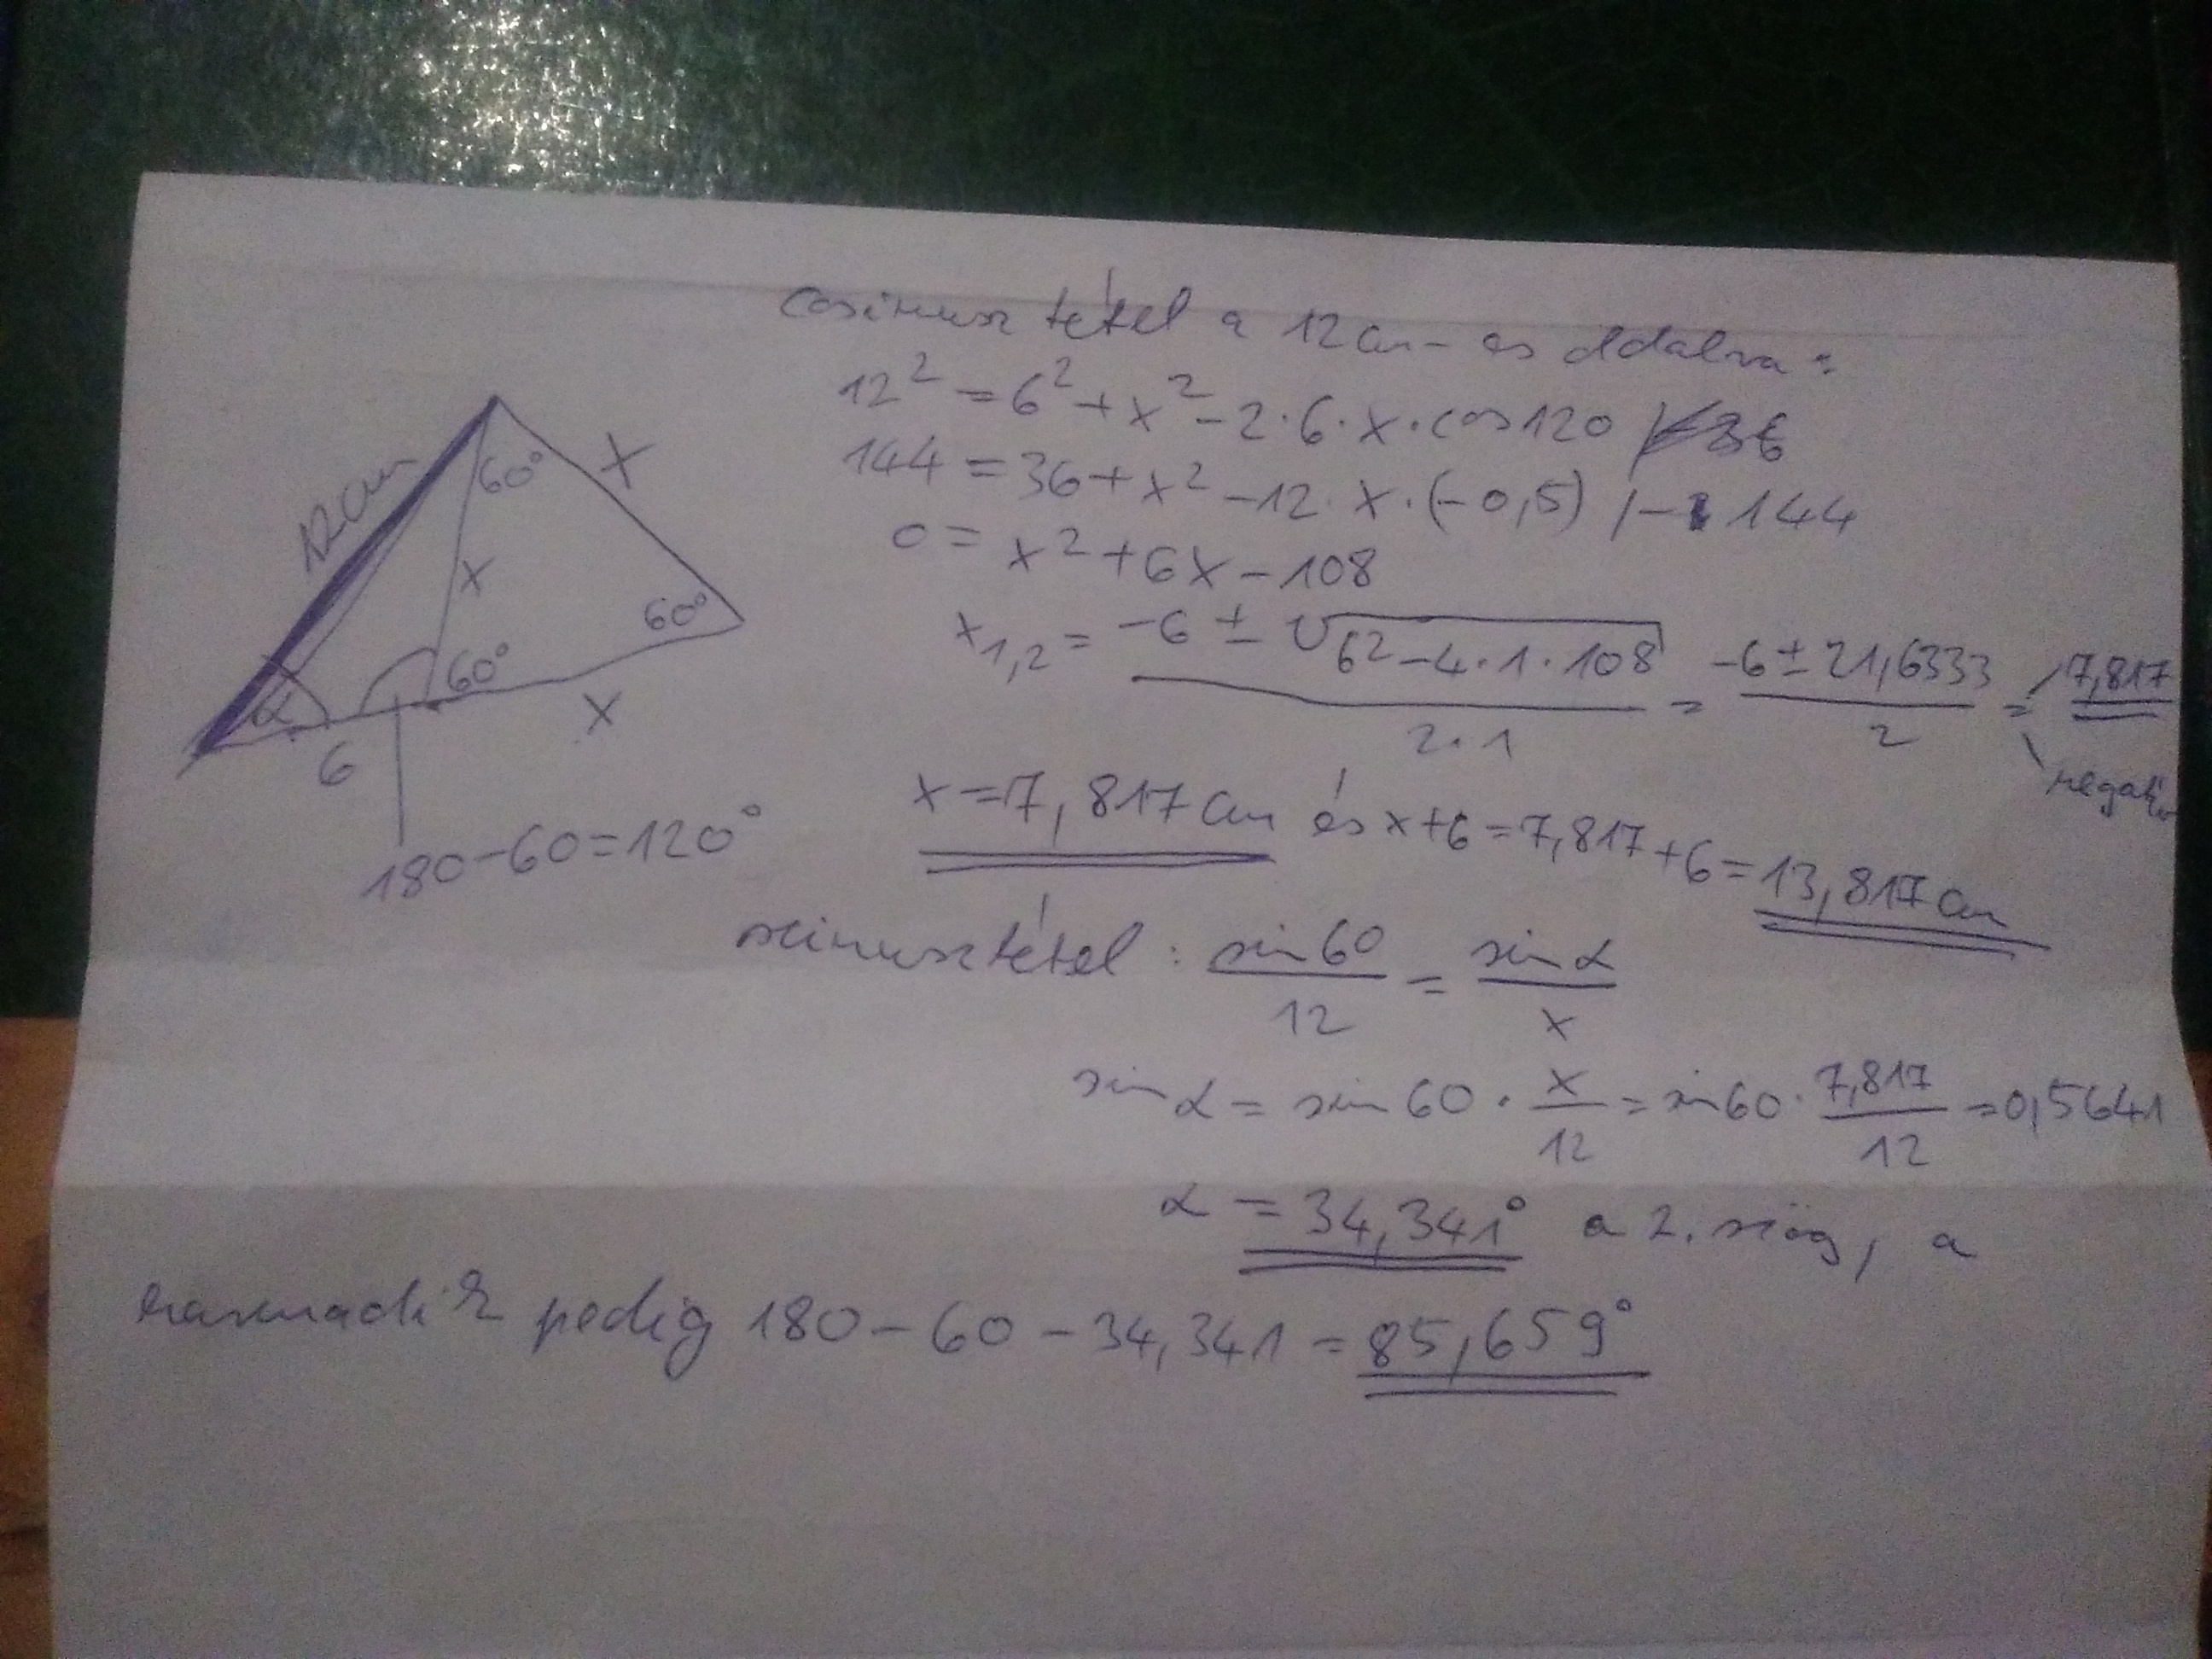 cosinusz tétel a 12cm-es oldalra:
12² = 6² + x² - 2·6·x·cos120
144 = 36 + x² - 12·x·(-0,5) /-144
0 = x² + 6x - 108
x₁,₂ = (-6 ± √(6² - 4·1·108)) / (2·1) = (-6 ± 21,6333) / 2 = 7,817
negatív
12cm
60°
x
x
60°
60°
α
6
x
180-60=120°
x = 7,817cm és x+6 = 7,817+6 = 13,817cm
szinusztétel: sin60 / 12 = sinα / x
sinα = sin60 · x/12 = sin60 · 7,817/12 = 0,5641
α = 34,341° a 2. szög, a
harmadik pedig 180 - 60 - 34,341 = 85,659°